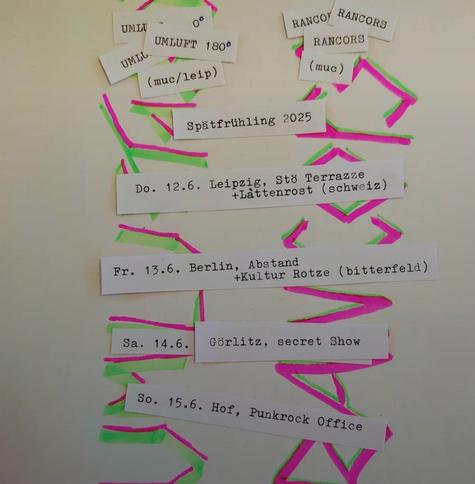 UMLU
0°
UMLUFT 180°
UMLU
(muc/leip)
RANCOR
RANCORS
RANCORS
(muc)
Spätfrühling 2025
Do. 12.6. Leipzig, Stö Terrazze
+Lattenrost (schweiz)
Fr. 13.6. Berlin, Abstand
+Kultur Rotze (bitterfeld)
Sa. 14.6. Görlitz, secret Show
So. 15.6. Hof, Punkrock Office